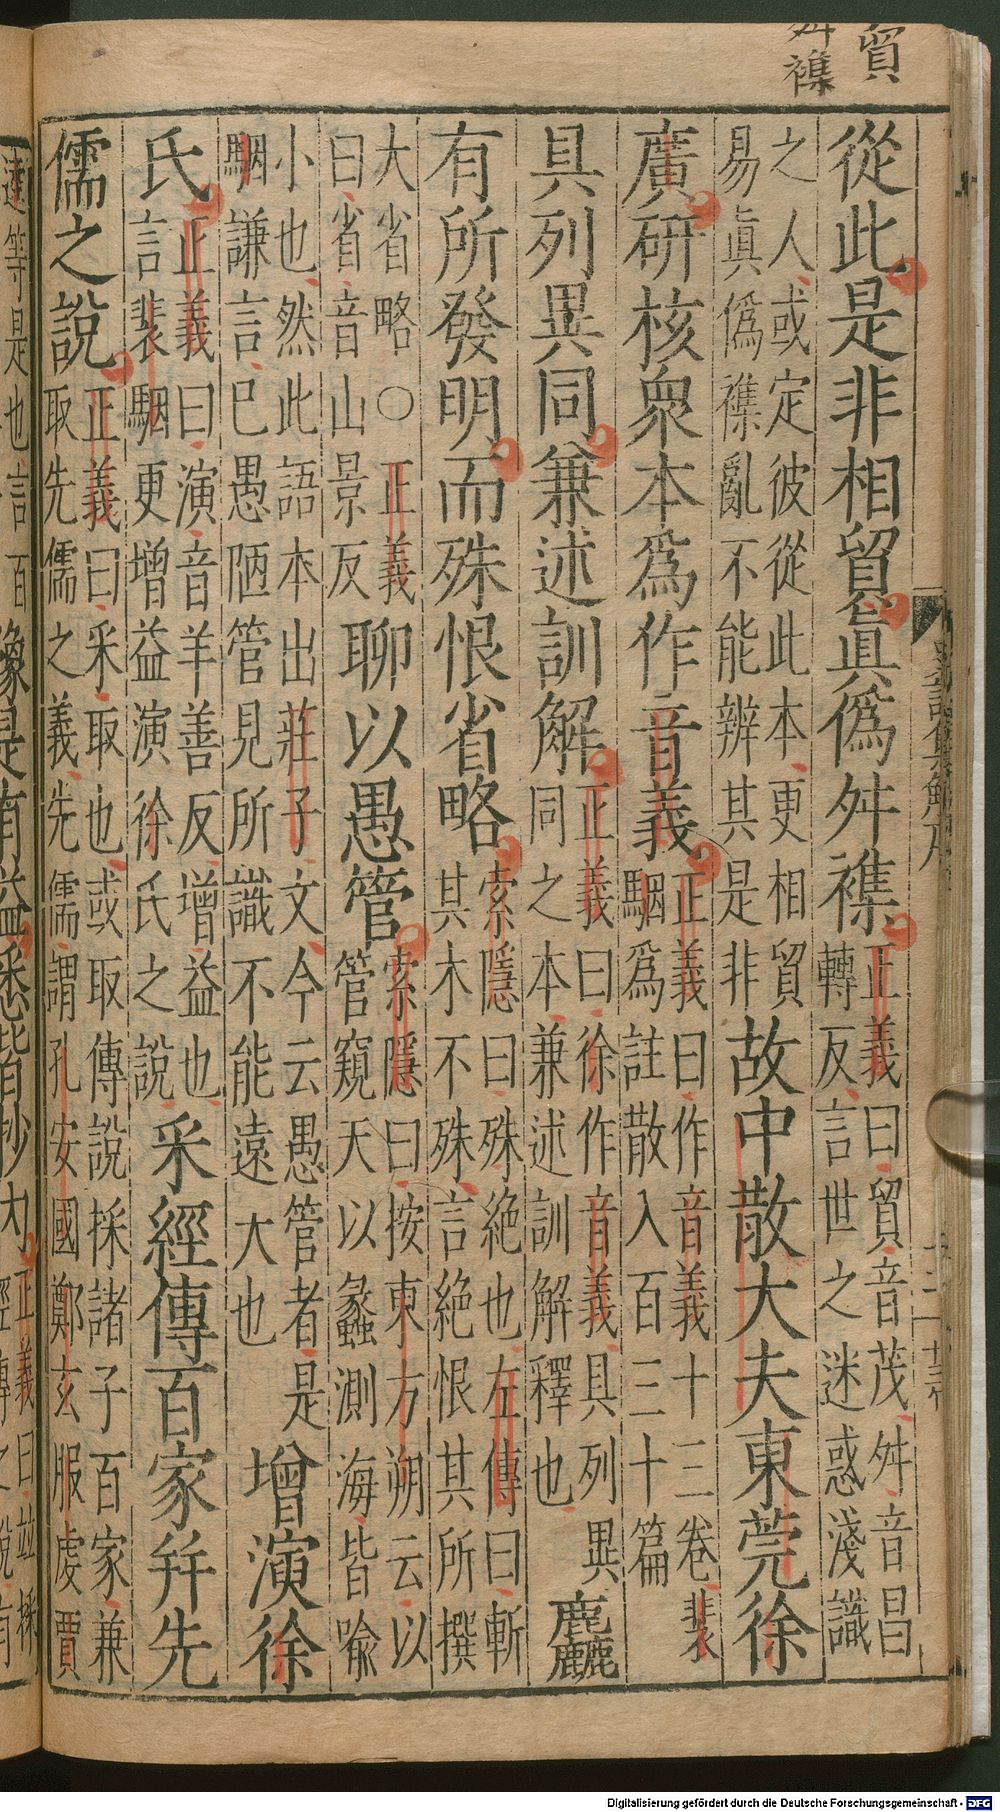 貿
舛襍
從此是非相貿眞僞舛襍正義曰貿音茂舛音昌
轉反言世之迷惑淺識
之人或定彼從此本更相貿
易眞僞襍亂不能辨其是非故中散大夫東莞徐
廣研核衆本爲作音義正義曰作音義十三卷裴
駰爲註散入百三十篇
具列異同兼述訓解正義曰徐作音義具列異
同之本兼述訓解釋也麤
有所發明而殊恨省略索隱曰殊絶也左傳曰斬
其木不殊言絶恨其所撰
大省略○正義
曰省音山景反聊以愚管索隱曰按東方朔云以
管窺天以蠡測海皆喩
小也然此語本出莊子文今云愚管者是
駰謙言巳愚陋管見所識不能遠大也增演徐
氏正義曰演音羊善反增益也
言裴駰更增益演徐氏之說采經傳百家幷先
儒之說正義曰采取也或取傳說採諸子百家兼
取先儒之義先儒謂孔安國鄭玄服虔賈
逵等是也言百
豫是有益悉皆抄內正義曰竝採
Digitalisierung gefördert durch die Deutsche Forschungsgemeinschaft - DFG